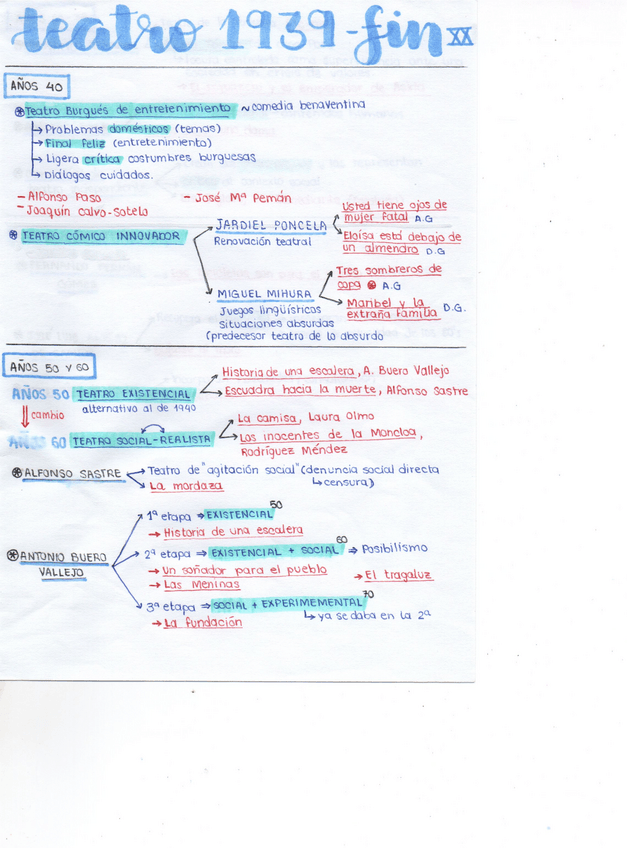 teatro 1939-fin XX
AÑOS 40
Teatro Burgués de entretenimiento ~ comedia benaventina
→ Problemas domésticos (temas)
→ Final feliz (entretenimiento)
→ Ligera crítica costumbres burguesas
→ Diálogos cuidados.
- Alfonso Paso - José Mª Pemán
- Joaquín Calvo-Sotelo
TEATRO CÓMICO INNOVADOR
JARDIEL PONCELA
Renovación teatral
Usted tiene ojos de
mujer fatal A.G
Eloísa está debajo de
un almendro D.G
MIGUEL MIHURA
Juegos lingüísticos
Situaciones absurdas
(predecesor teatro de lo absurdo
Tres sombreros de
copa A.G
Maribel y la
extraña familia D.G.
AÑOS 50 Y 60
AÑOS 50 TEATRO EXISTENCIAL
alternativo al de 1940
Historia de una escalera, A. Buero Vallejo
Escuadra hacia la muerte, Alfonso Sastre
cambio
AÑOS 60 TEATRO SOCIAL-REALISTA
La camisa, Laura Olmo
Los inocentes de la Moncloa,
Rodríguez Méndez
ALFONSO SASTRE
→ Teatro de "agitación social" (denuncia social directa
↳ censura)
→ La mordaza
ANTONIO BUERO
VALLEJO
1ª etapa ⇒ EXISTENCIAL 50
→ Historia de una escalera
2ª etapa ⇒ EXISTENCIAL + SOCIAL 60 ⇒ Posibilismo
→ Un soñador para el pueblo
→ Las Meninas
→ El tragaluz
3ª etapa ⇒ SOCIAL + EXPERIMEMENTAL 70
↳ ya se daba en la 2ª
→ La fundación